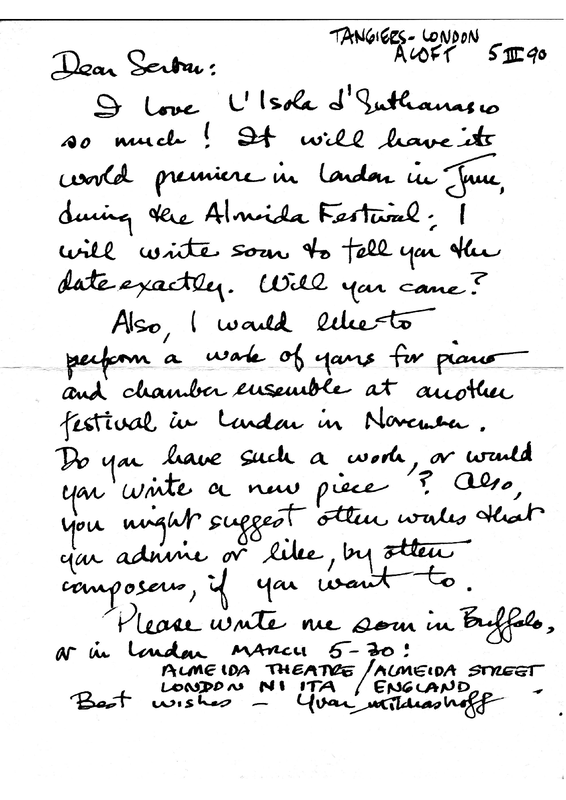 TANGIERS-LONDON
ALOFT 5 III 90
Dear Serban:
I love L'Isola d'Euthanasio
so much! It will have its
world premiere in London in June,
during the Almeida Festival; I
will write soon to tell you the
date exactly. Will you come?
Also, I would like to
perform a work of yours for piano
and chamber ensemble at another
festival in London in November.
Do you have such a work, or would
you write a new piece? Also,
you might suggest other works that
you admire or like, by other
composers, if you want to.
Please write me soon in Buffalo,
or in London MARCH 5-30:
ALMEIDA THEATRE / ALMEIDA STREET
LONDON N1 1TA / ENGLAND
Best wishes - Yvar Mikhashoff